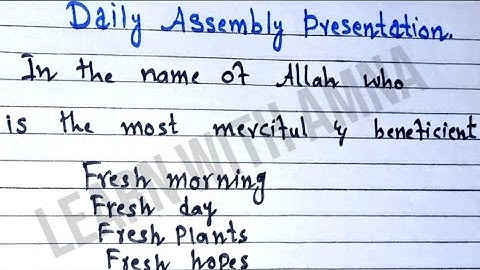 Daily Assembly Presentation.
In the name of Allah who
is the most merciful & beneficient
Fresh morning
Fresh day
Fresh Plants
Fresh hopes
LEARN WITH AMNA